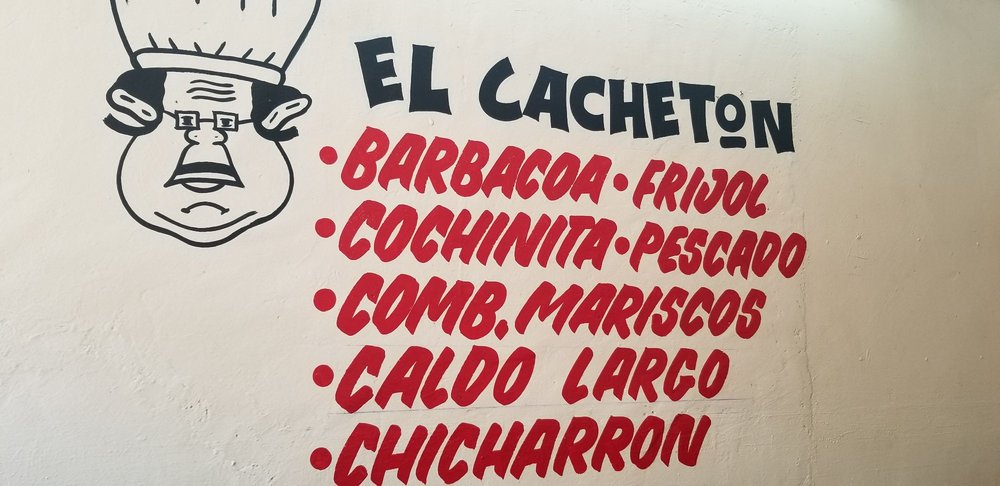 EL CACHETON
• BARBACOA • FRIJOL
• COCHINITA • PESCADO
• COMB. MARISCOS
• CALDO LARGO
• CHICHARRON